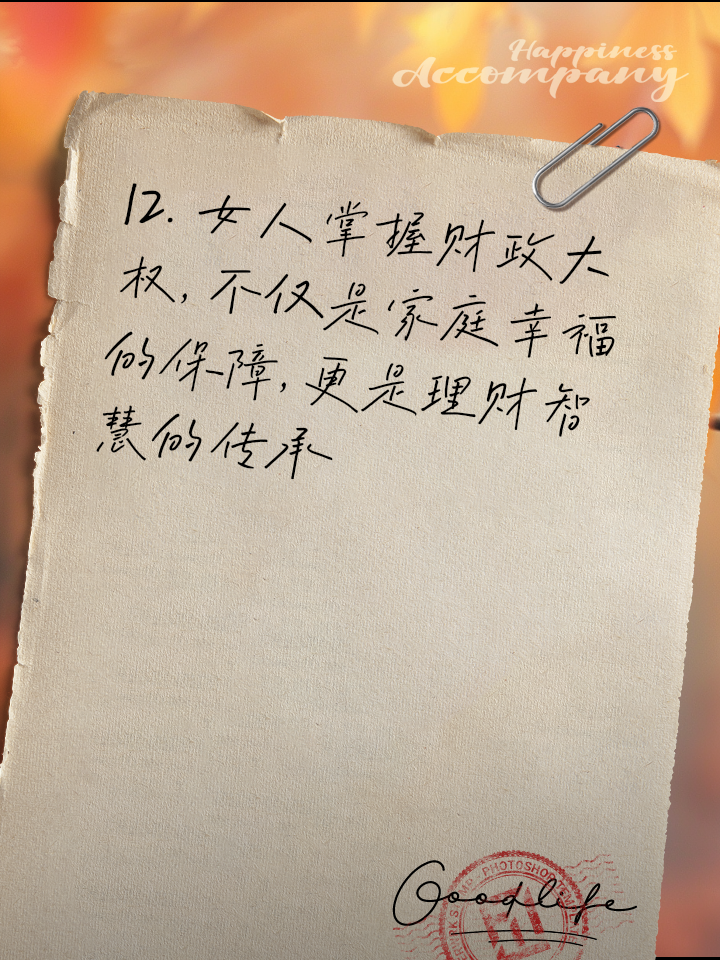 Happiness
Accompany
12. 女人掌握财政大
权, 不仅是家庭幸福
的保障, 更是理财智
慧的传承
PHOTOSHOP
Goodlife